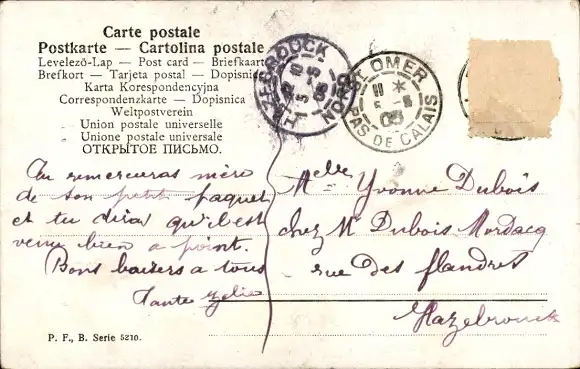 Carte postale
Postkarte — Cartolina postale
Levelező-Lap — Post card — Briefkaart
Brefkort — Tarjeta postal — Dopisnica
Karta Korespondencyjna
Correspondenzkarte — Dopisnica
Weltpostverein
Union postale universelle
Unione postale universale
ОТКРЫТОЕ ПИСЬМО.
HAZEBROUCK NORD
ST OMER
PAS DE CALAIS
Tu remercieras mère
de son petit paquet
et tu diras qu'il est
venu bien a point.
Bons baisers a tous
Tante Zélie
Melle Yvonne Dubois
chez Mr Dubois Mordacq
rue des flandres
Hazebrouck
P. F., B. Serie 5210.